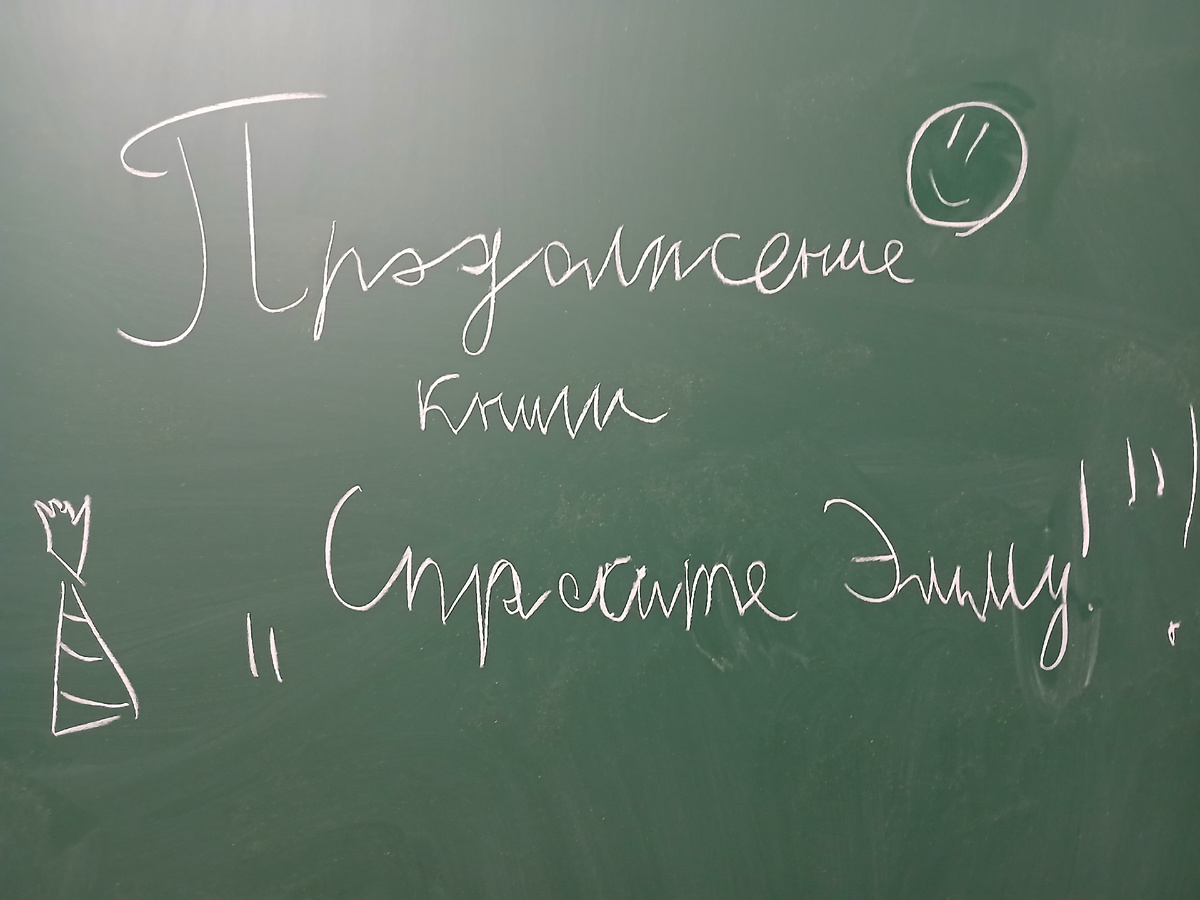 Продолжение
книги
„Спросите Эмму!"!